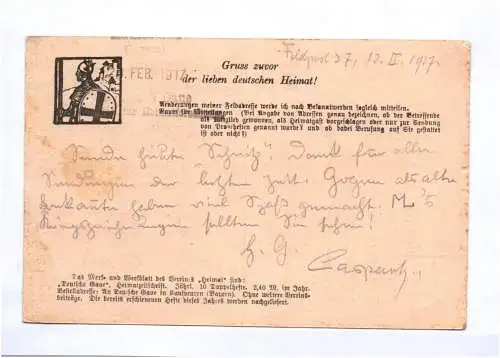 Gruss zuvor
der lieben deutschen Heimat!
Feldpost 37, 12. II. 1917.
FEB. 1917
Aenderungen meiner Feldadresse werde ich nach Bekanntwerden sogleich mitteilen.
Raum für Mitteilungen (Bei Angabe von Adressen genau bezeichnen, ob der Betreffende
als Mitglied gewonnen, als Heimatgast vorgeschlagen oder nur zur Sendung
von Druckheften genannt wurde? und ob dabei Berufung auf Sie gestattet
ist oder nicht?)
Sende heute "Schütz". Dank für alle
Sendungen der letzten Zeit. als alte
haben viel Spaß gemacht. M's
Kriegszeichnungen sollten Sie sehen!
H. G.
Caspart.
Das Merk- und Werkblatt des Vereins „Heimat" sind:
„Deutsche Gaue", Heimatzeitschrift. Jährl. 10 Doppelhefte. 2,40 M. im Jahr.
Bestelladresse: An Deutsche Gaue in Kaufbeuren (Bayern). Ohne weitere Vereins-
beiträge. Die bereits erschienenen Hefte dieses Jahres werden nachgeliefert.